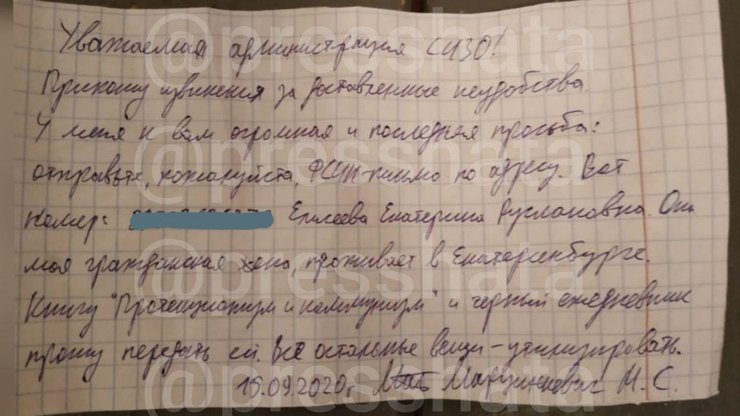 @presshata
Уважаемая администрация СИЗО!
Приношу извинения за доставленные неудобства.
У меня к вам огромная и последняя просьба:
@presshata
отправьте, пожалуйста, ФСИН-письмо по адресу. Вот
номер: Елисеева Екатерина Руслановна. Она
моя гражданская жена, проживает в Екатеринбурге.
@presshata
Книгу "Протекционизм и коммунизм" и черный ежедневник
прошу передать ей. Все остальные вещи – утилизировать.
@presshata
15.09.2020г. Марцинкевич М. С.